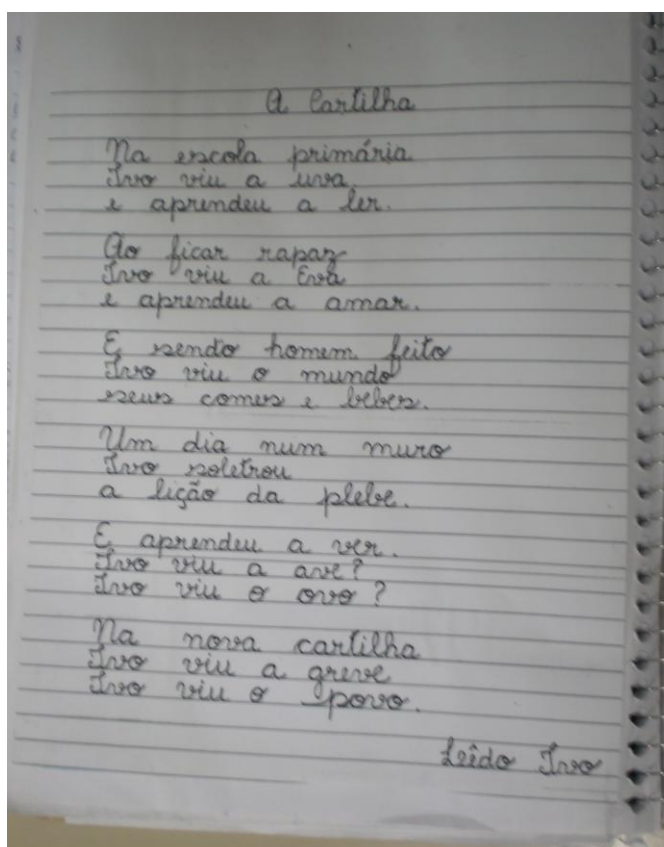 A Cartilha
Na escola primária
Ivo viu a uva
e aprendeu a ler.
Ao ficar rapaz
Ivo viu a Eva
e aprendeu a amar.
E sendo homem feito
Ivo viu o mundo
seus comes e bebes.
Um dia num muro
Ivo soletrou
a lição da plebe.
E aprendeu a ver.
Ivo viu a ave?
Ivo viu o ovo?
Na nova cartilha
Ivo viu a greve
Ivo viu o povo.
Lêdo Ivo